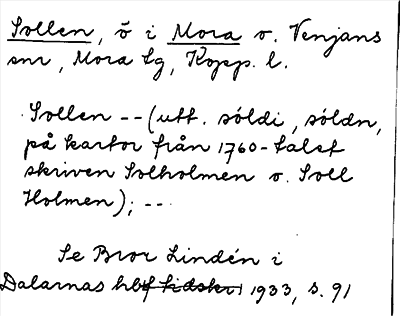 Sollen, ö i Mora o. Venjans
snr, Mora tg, Kopp. l.
Sollen -- (utt. sóldi, sóldn,
på kartor från 1760-talet
skriven Solholmen o. Soll
Holmen); --
Se Bror Lindén i
Dalarnas hbf tidskr 1933, s. 91